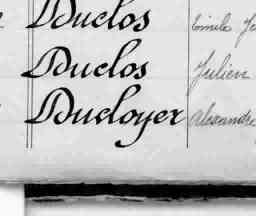 Duclos Emile
Duclos Julien
Ducloyer Alexandre